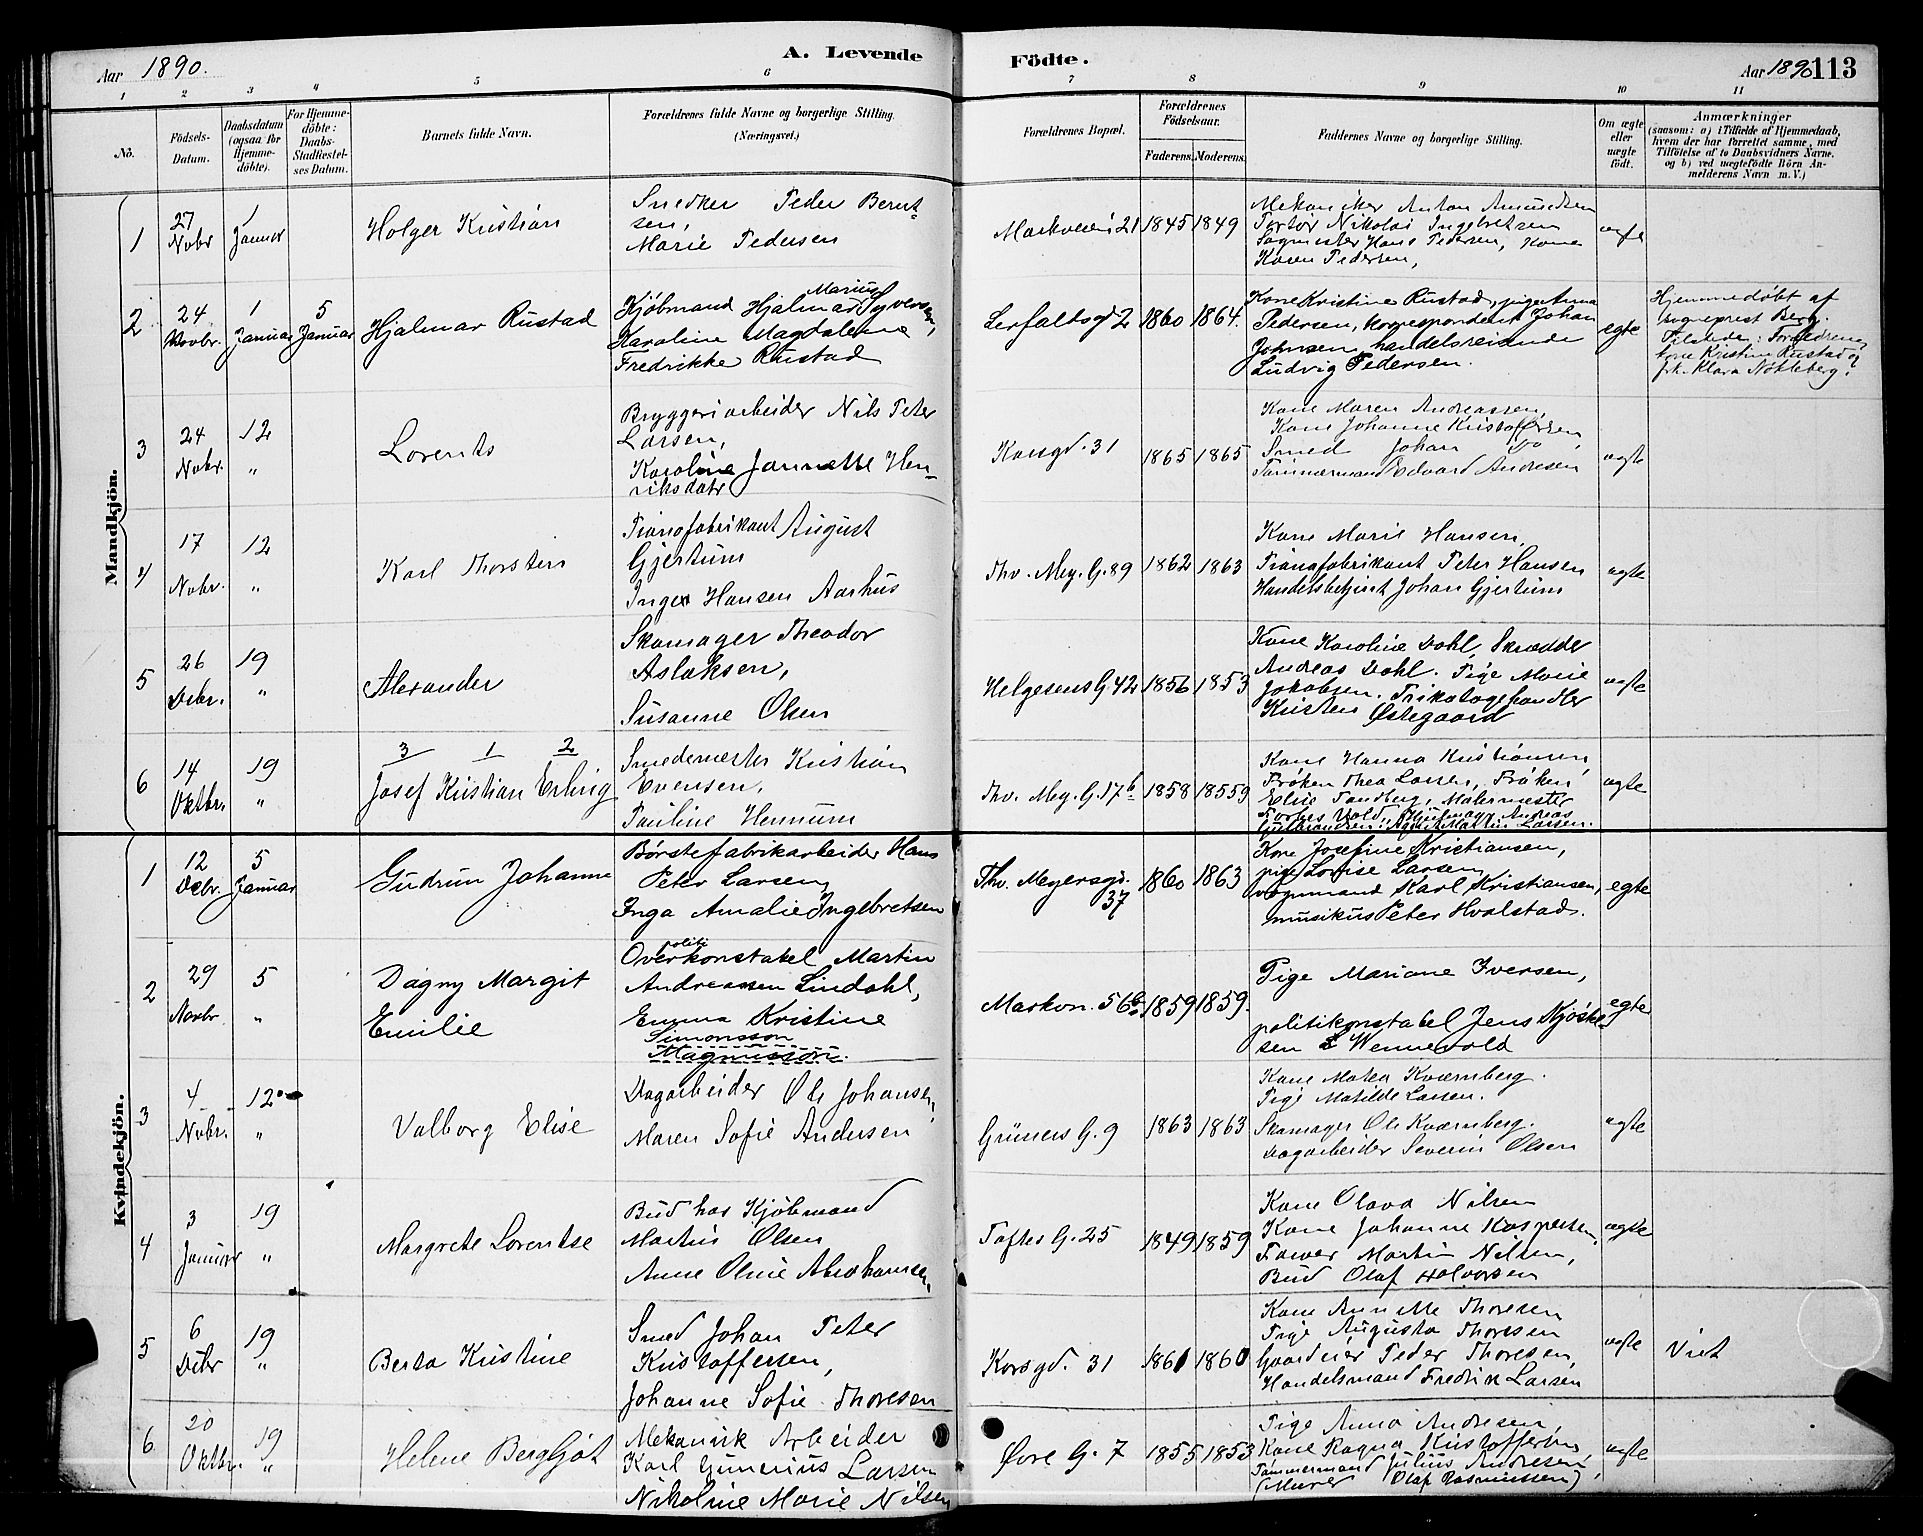 A. Levende Födte.
Aar 1890.
Aar 1890 113
1 2 3 4 5 6 7 8 9 10 11
No.
Födsels-Datum.
Daabsdatum (ogsaa for Hjemmedöbte).
For Hjemmedöbte: Daabs-Stadfæstelses Datum.
Barnets fulde Navn.
Forældrenes fulde Navne og borgerlige Stilling. (Næringsvei.)
Forældrenes Bopæl.
Forældrenes Födselsaar.
Faderens. Moderens.
Faddernes Navne og borgerlige Stilling.
Om ægte eller uægte født.
Anmærkninger
(saasom: a) i Tilfælde af Hjemmedaab, hvem der har forrettet samme, med Tilföielse af to Daabsvidners Navne, og b) ved uægtefödte Börn Anmelderens Navn m. V.)
Mandkjön.
1 27 Novbr 1 Januar
Holger Kristian
Snedker Peder Bernt-
sen,
Marie Pedersen
Markveien 21 1845 1849
Mekaniker Anton Amundsen
Nikolai Ingebretsen
Sagmester Hans Pedersen, Kone
Karen Pedersen,
ægte
2 24 Novbr. 1 Januar 5 Januar
Hjalmar Rustad
Kjöbmand Hjalmar Marius Syversen,
Karoline Magdalene
Fredrikke Rustad
Lerfaldsgd 2 1860 1864.
Kone Kristine Rustad, pige Anna
Pedersen, Korrespondent Johan
Johnsen, handelsreisende
Ludvig Pedersen.
egte
Hjemmedøbt af
sogneprest Berg.
Tilstede: Forældrene,
kone Kristine Rustad og
frk. Klara Nökleberg.
3 24 Novbr. 12 "
Lorents
Bryggeriarbeider Nils Peter
Larsen,
Karoline Jannette Hen-
riksdatr
Korsgd. 31 1865 1865
Kone Maren Andreassen,
Kone Johanne Kristoffersen
Smed Johan do
Tømmermand Edvard Andresen
ægte
4 17 Novbr. 12 "
Karl Thorstein
Pianofabrikant August
Gjertum
Inger Hansen Aarhus
Thv. Mey. G. 89 1862 1863
Kone Marie Hansen,
Pianofabrikant Peter Hansen
Handelsbetjent Johan Gjertum
ægte
5 26 Debr. 19 "
Alexander
Skomager Theodor
Aslaksen,
Susanne Olsen
Helgesens G. 42 1856 1853
Kone Karoline Dahl, Skrædder
Andreas Dahl. Pige Marie
Jakobsen. Trikotagehandler
Kristen Østegaard
ægte
6 14 Oktbr. 19 "
3 1 2
Josef Kristian Erling
Smedemester Kristian
Evensen,
Pauline Hennum
Thv. Mey. G. 17 b 1858 18559
Kone Hanna Kristiansen
Frøken Thea Larsen, Frøken
Elise Sandberg, Malermester
Andreas
Larsen.
ægte
Kvindekjön.
1 12 Debr. 5 Januar
Gudrun Johanne
Børstefabrikarbeider Hans
Peter Larsen,
Inga Amalie Ingebretsen
Thv. Meyersgd. 37 1860 1863
Kone Josefine Kristiansen,
pige Lovise Larsen,
vognmand Karl Kristiansen,
musikus Peter Hvalstad.
egte
2 29 Novbr 5 "
Dagny Margit
Emilie
Overpolitikonstabel Martin
Andreassen Lindahl,
Emma Kristine
Simonsson
Magnusson.
Markvn. 56 b 1859 1859.
Pige Mariane Iversen,
politikonstabel Jens
sen Wennevold
egte
3 4 Novbr. 12 "
Valborg Elise
Dagarbeider Ole Johansen,
Maren Sofie Andersen
Grüners G. 9 1863 1863
Kone Matea Kværnberg.
Pige Matilde Larsen.
Skomager Ole Kværnberg.
Dagarbeider Severin Olsen
ægte
4 3 Januar 19 "
Margrete Lorentse
Bud hos Kjöbmand
Martin Olsen
Anne Oline Abrahamsen,
Toftes G. 25 1849 1859
Kone Olava Nilsen
Kone Johanne Kaspersen,
Farver Martin Nilsen,
Bud Olaf Halvorsen
ægte
5 6 Debr 19 "
Berta Kristine
Smed Johan Peter
Kristoffersen,
Johanne Sofie Thoresen
Korsgd. 31 1861 1860
Kone Annette Thoresen
Pige Augusta Thoresen
Gaardeier Peder Thoresen,
Handelsmand Fredrik Larsen
ægte
6 20 Oktbr. 19 "
Helene Bergljot
Mekanisk Arbeider
Karl Gunerius Larsen
Nikoline Marie Nilsen
Øvre G. 7 1855 1853
Pige Anna Andresen,
Kone Ragna Kristoffersen,
Tømmermand Julius Andresen,
(Murer Olaf Rasmussen)
ægte